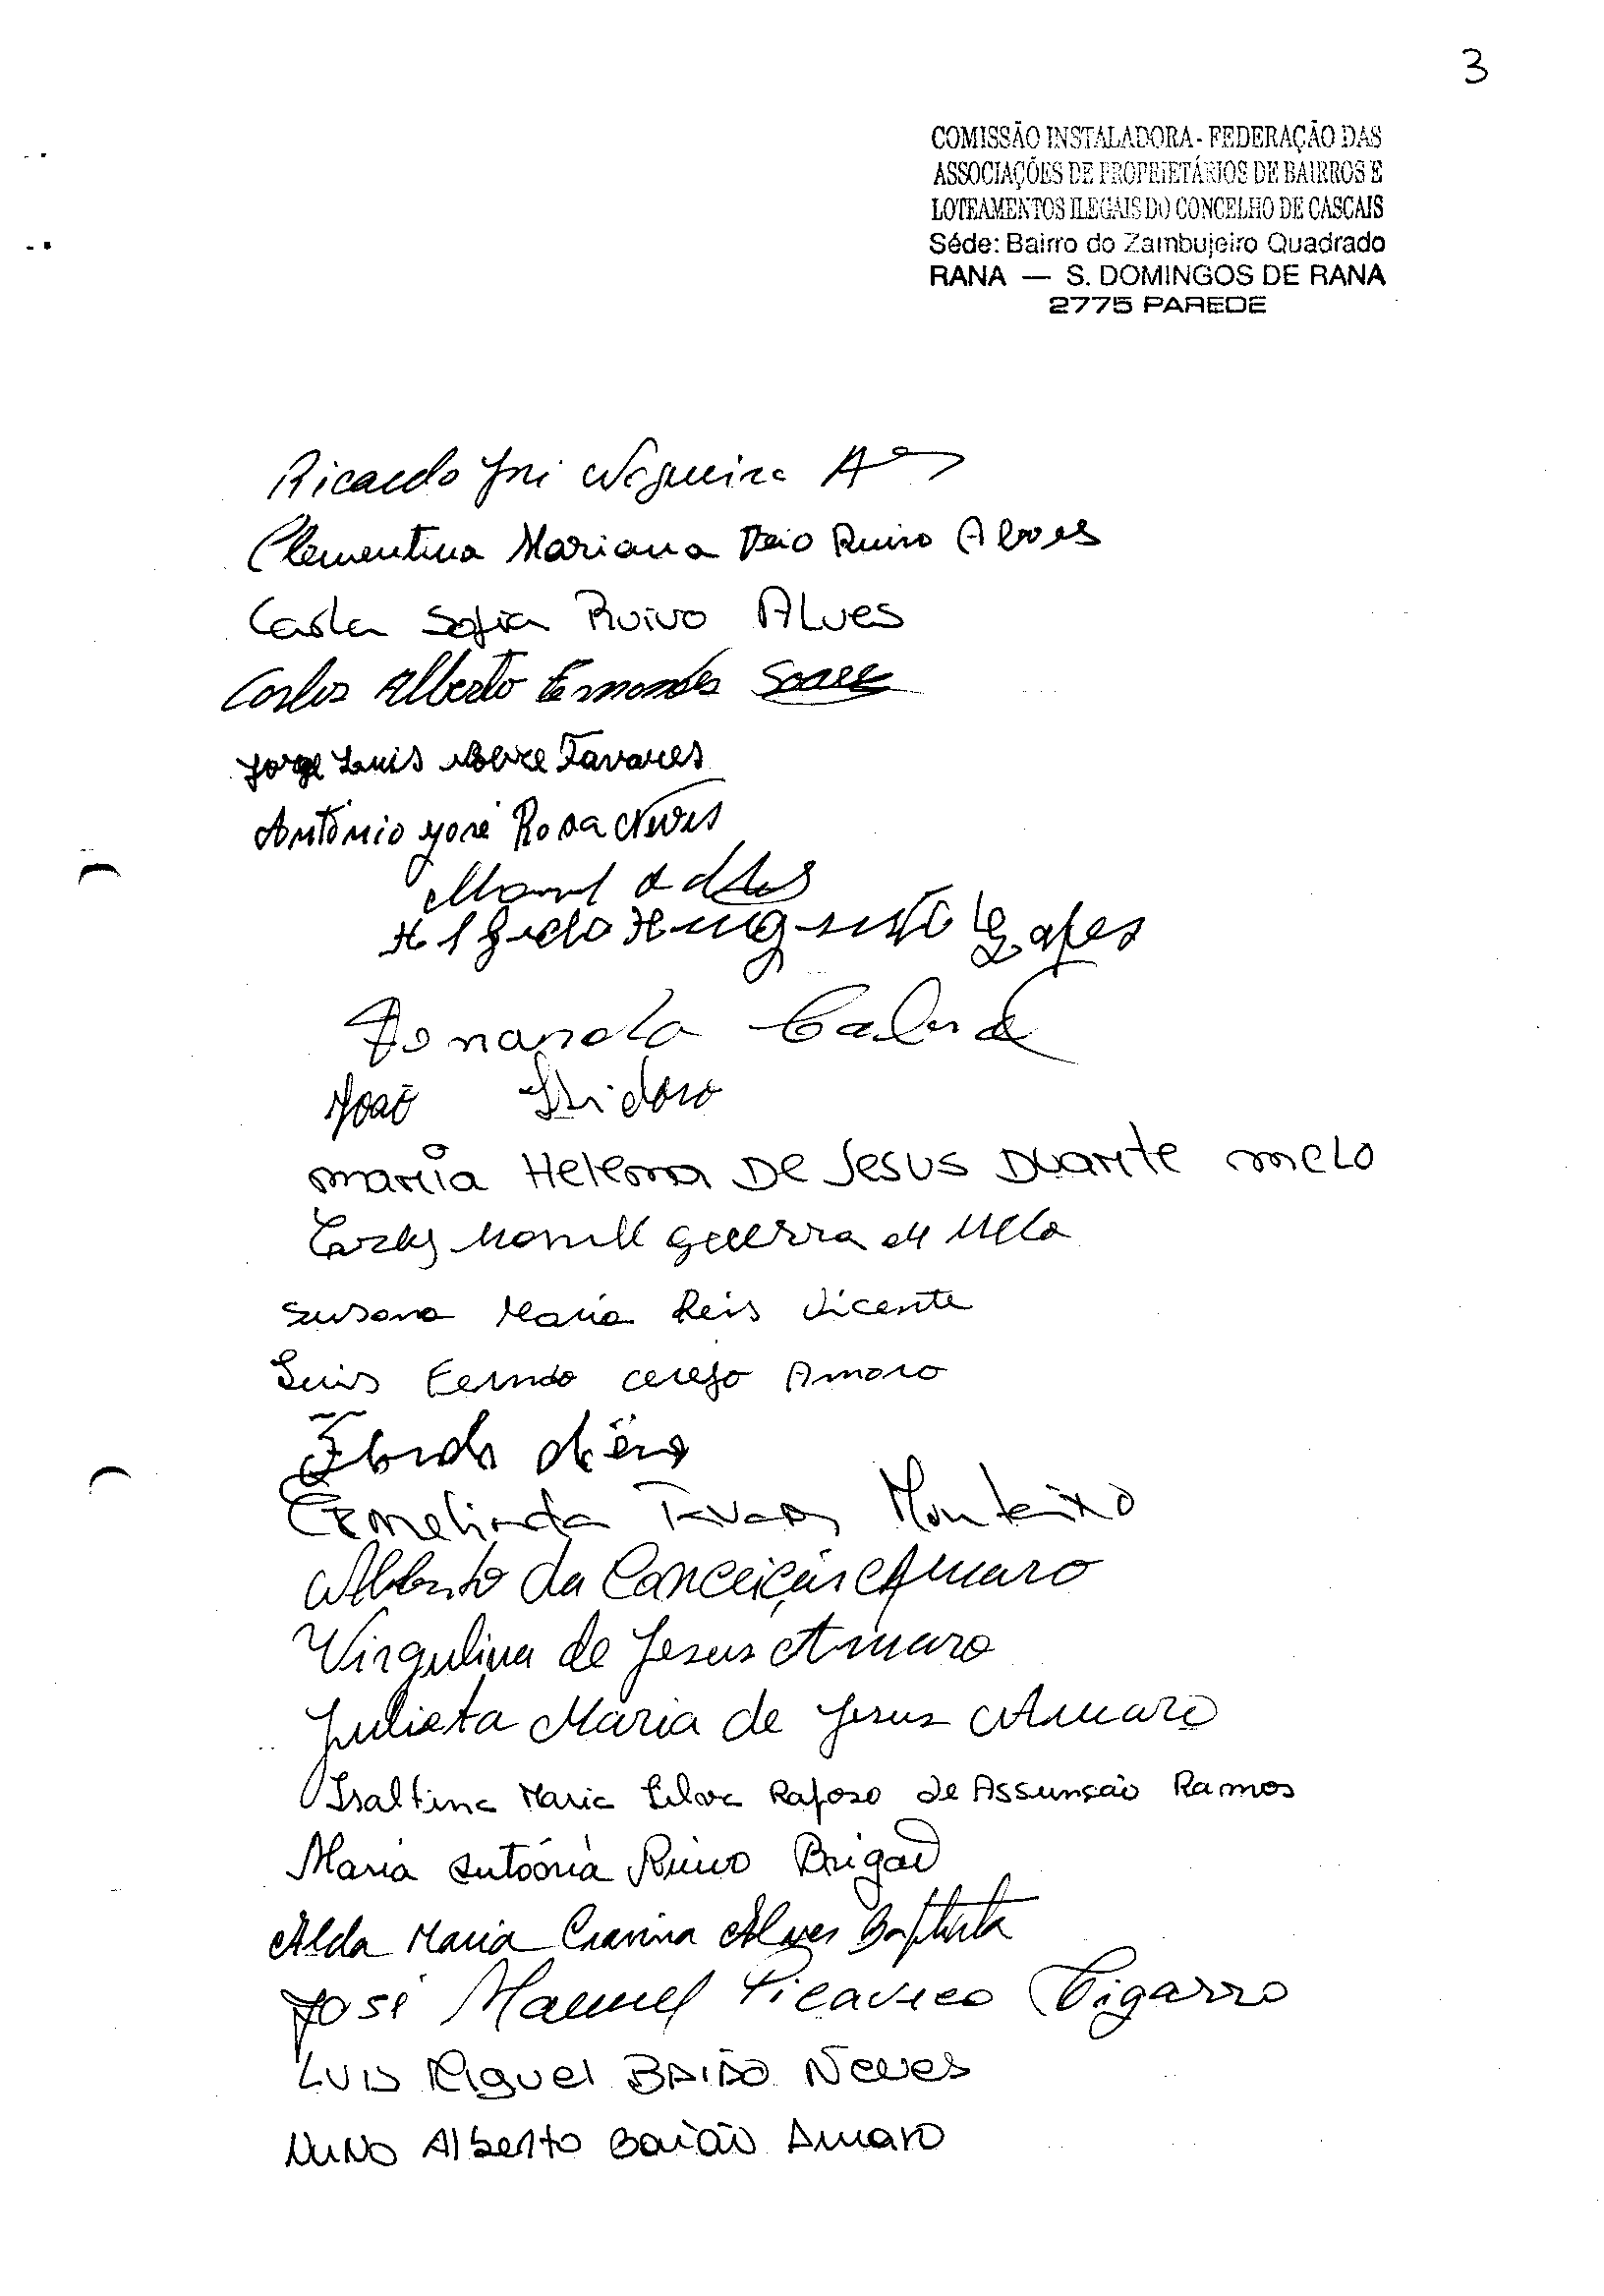 3
COMISSÃO INSTALADORA - FEDERAÇÃO DAS
ASSOCIAÇÕES DE PROPRIETÁRIOS DE BAIRROS E
LOTEAMENTOS ILEGAIS DO CONCELHO DE CASCAIS
Séde: Bairro do Zambujeiro Quadrado
RANA — S. DOMINGOS DE RANA
2775 PAREDE
Ricardo José Nogueira
Clementina Mariana Ruivo Alves
Carla Sofia Ruivo Alves
Carlos Alberto Fernandes Soares
Jorge Luis Nobre Tavares
António José Rosa Neves
Manuel
Alfredo Augusto Lopes
Fernanda Cabral
João Isidoro
Maria Helena De Jesus Duarte Melo
Carlos Manuel Guerra de Melo
Susana Maria Reis Vicente
Luis Fernando cerejo Amaro
Ermelinda Tavares Monteiro
Alberto da Conceição Amaro
Virgulina de Jesus Amaro
Julieta Maria de Jesus Amaro
Isaltina Maria Silva Raposo de Assunção Ramos
Maria Antónia Ruivo
Alda Maria Alves Baptista
José Manuel Picanço Cigarro
Luis Miguel BAIÃO Neves
NUNO Alberto Baião Amaro